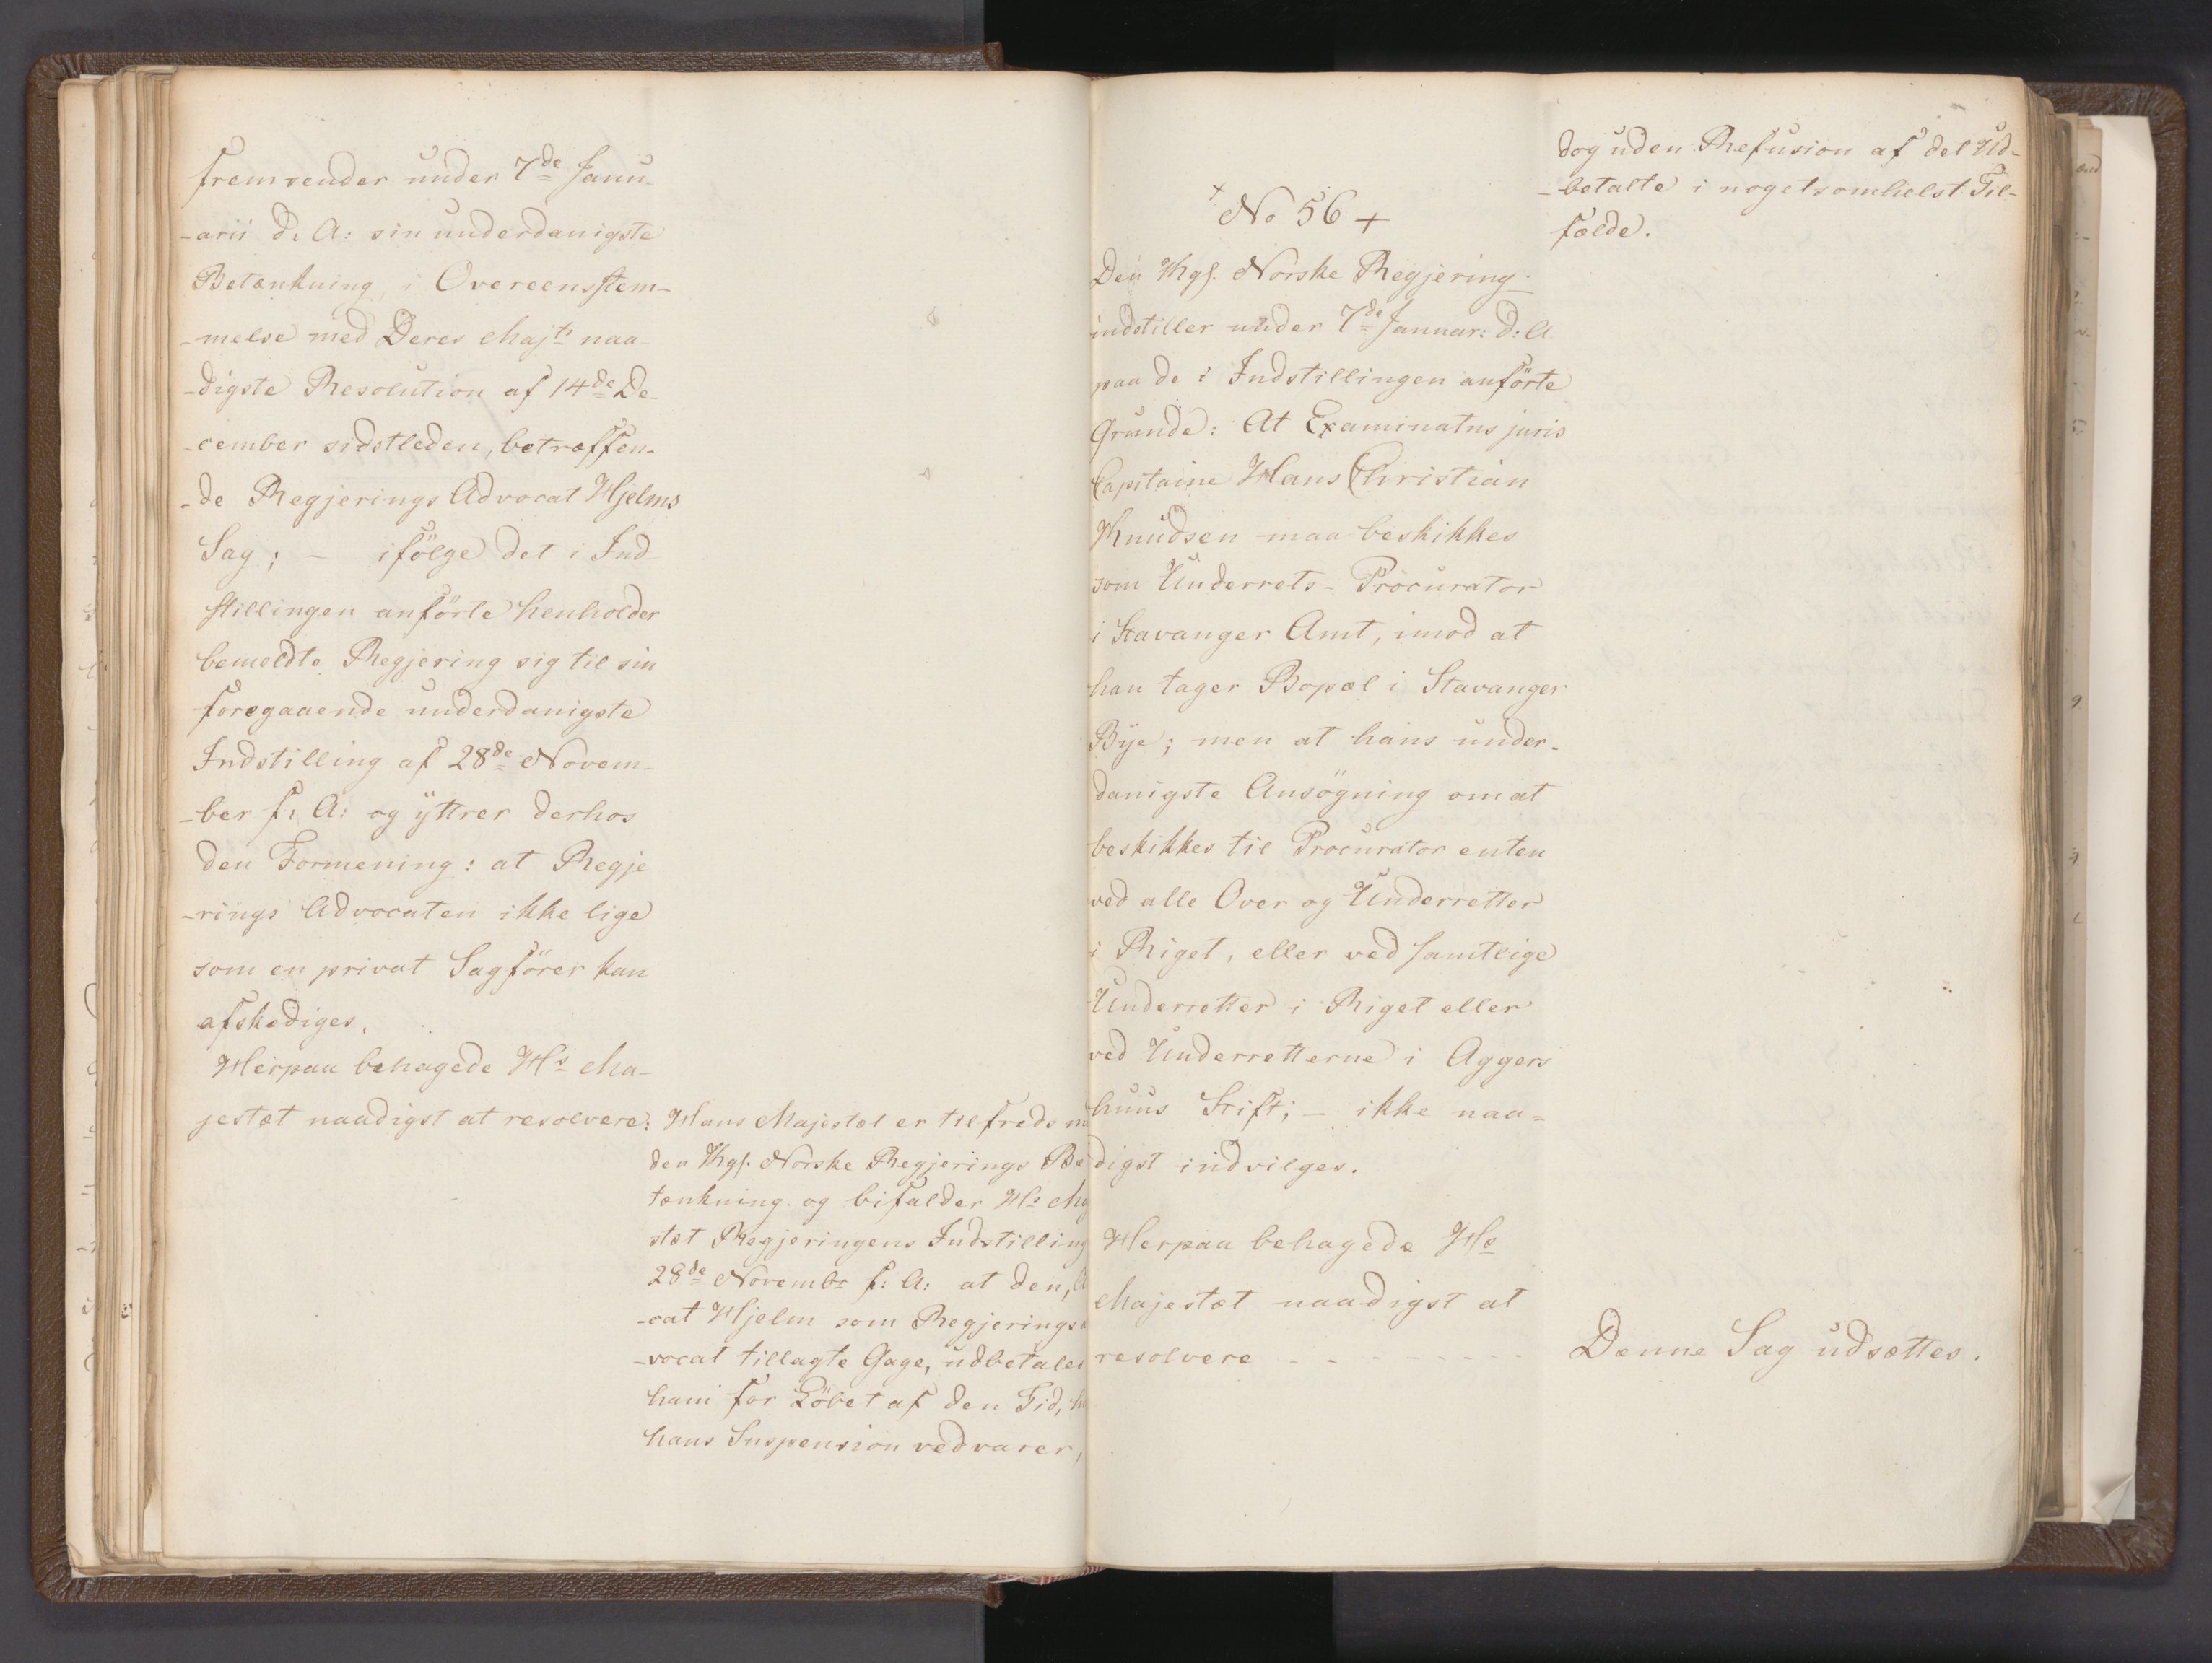 fremsender under 7de Janu-
-arii d. A: sin underdanigste
Betænkning, i Overeensstem-
-melse med Deres Majts naa-
-digste Resolution af 14de De-
-cember sidstleden, betræffen-
-de Regjerings Advocat Hjelms
Sag; - ifölge det i Ind-
stillingen anförte henholder
bemeldte Regjering sig til sin
foregaaende underdanigste
Indstilling af 28de Novem-
-ber f. A: og yttrer derhos
den Formening: at Regje
-rings Advocaten ikke lige
som en privat Sagförer kan
afskediges.
Herpaa behagede Hs Ma-
jestæt naadigst at resolvere:
Hans Majestæt er tilfreds
den Kgl. Norske Regjerings Be
tænkning og bifalder Hs
stæt Regjeringens Indstilling
28de Novembr f: A: at den,
-cat Hjelm som Regjerings
-vocat tillagte Gage, udbetales
ham for Löbet af den Tid,
hans Suspension vedvarer,
dog uden Refusion af det Ud-
-betalte i nogetsomhelst Til-
fælde.
+ No 56 +
Den Kgl. Norske Regjering
indstiller under 7de Januar: d: A
paa de i Indstillingen anförte
Grunde: At Examinatus juris
Capitaine Hans Christian
Knudsen maa beskikkes
som Underrets-Procurator
i Stavanger Amt, imod at
han tager Bopæl i Stavanger
Bye; men at hans under-
danigste Ansögning om at
beskikkes til Procurator enten
ved alle Over og Underretter
i Riget, eller ved samtlige
Underretter i Riget eller
ved Underretterne i Aggers
huus Stift; - ikke naa=
digst indvilges.
Herpaa behagede Hs
Majestæt naadigst at
resolvere - - - - - - - -
Denne Sag udsættes.